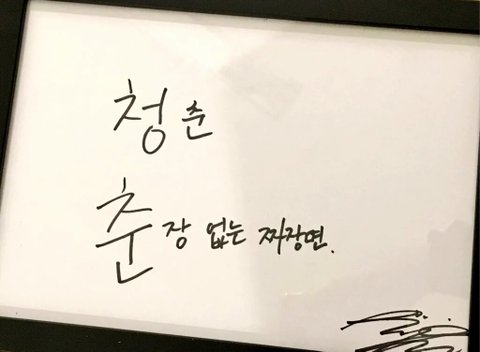 청춘
춘장 없는 짜장면.